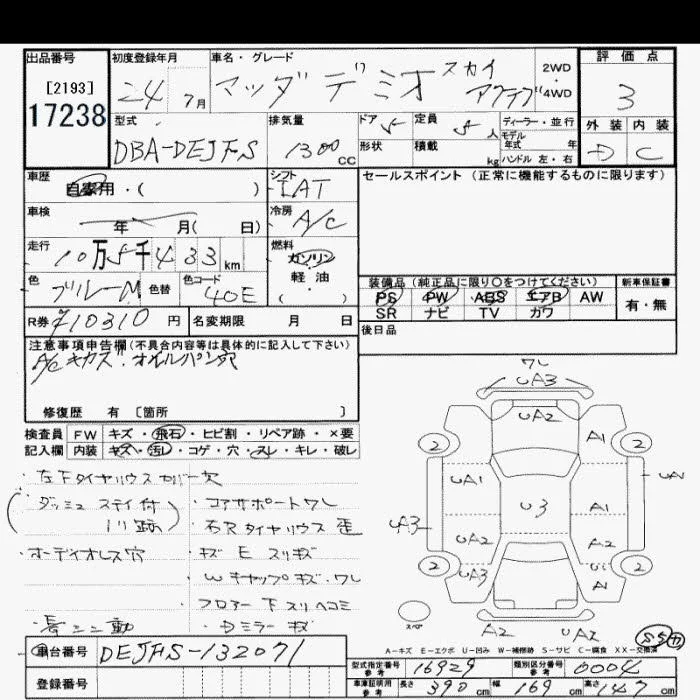 出品番号
[2193]
17238
初度登録年月
24 7月
車名・グレード
マツダ デミオ スカイ アクテブ
2WD・4WD
評価点
3
外装 内装
D C
型式
DBA-DEJFS
排気量
1300 CC
ドア 5
定員 5 人
ディーラー・並行
モデル年式 年
形状
積載 kg
ハンドル 左・右
車歴
自家用・( )
シフト
IAT
セールスポイント (正常に機能するものに限ります)
車検
年 月( 日)
冷房
A/C
走行
10万5千433km
燃料
ガソリン
軽・油
( )
色
ブルーM
色替
色コード
40E
装備品 (純正品に限り〇をつけてください)
新車保証書
PS PW ABS エアB AW
有・無
SR ナビ TV カワ
R券 ¥10310 円
名変期限 月 日
後日品
注意事項申告欄(不具合内容等は具体的に記入して下さい)
A/Cキカズ・オイルパン穴
修復歴 有 〔箇所 〕
検査員 FW キズ・飛石・ヒビ割・リペア跡・×要
記入欄 内装 キズ・汚レ・コゲ・穴・スレ・キレ・破レ
・左下タイヤハウスカバー欠
(ダッシュ ステイ付
・コアサポートワレ
・右Rタイヤハウス 歪
・オーディオレス穴
・キズ E スリキズ
・Wキャップキズ・ワレ
・フロアー下スリヘコミ
・Dミラーキズ
ワレ
UA3
UA2
2
2
A1
UA1
UA1
U3
A1
UA3
UA2
A2
2
UA3
2
A1
スペア
A2
UA2
A-キズ E-エクボ U-凹み W-補修跡 S-サビ C-腐食 XX-交換済
車台番号
DEJFS-132071
登録番号
型式指定番号 参考
16929
類別区分番号 参考
0004
車庫証明用 参考
長さ 390 cm
幅 169 cm
高さ 147 cm